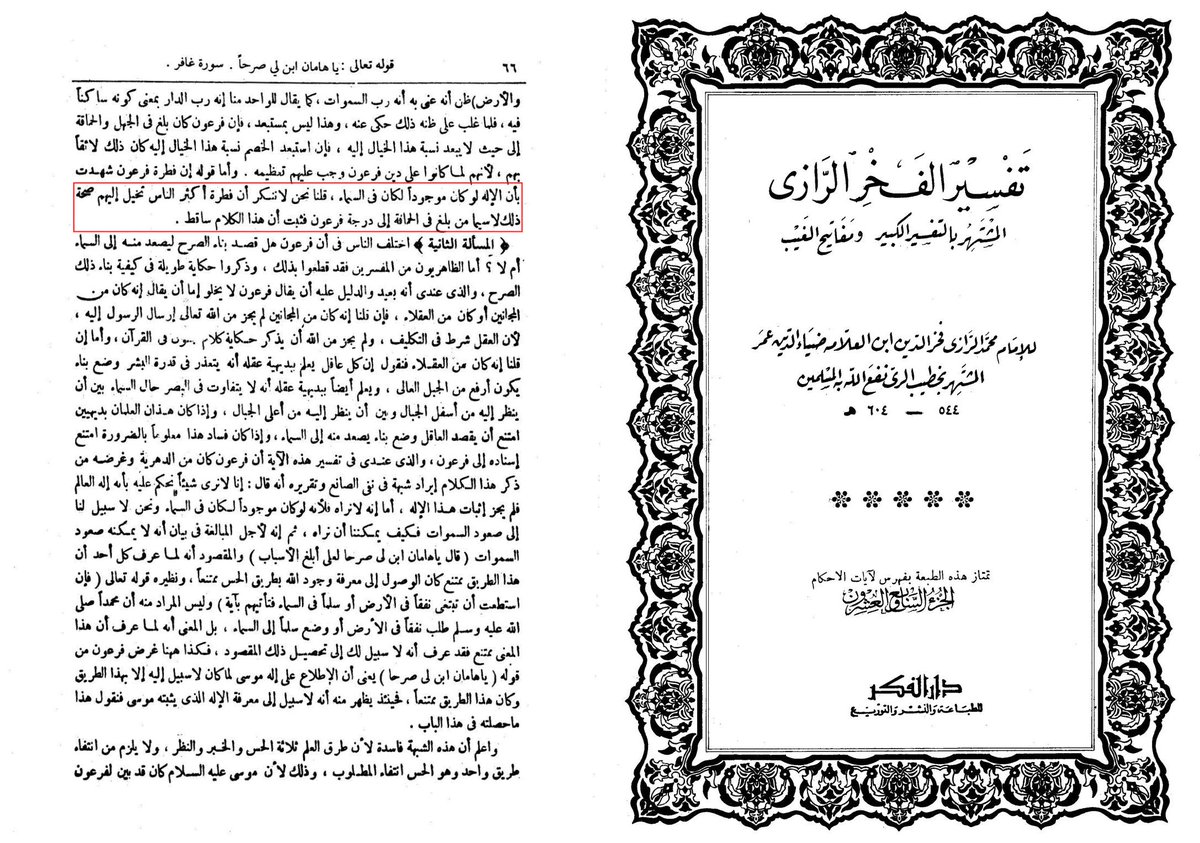 تفسير الفخر الرازى
المشتهر بالتفسير الكبير ومفاتيح الغيب
للإمام محمد الرازى فخر الدين ابن العلامه ضياء الدين عمر
المشتهر بخطيب الرى نفع الله به المسلمين
٥٤٤ — ٦٠٤ هـ
تمتاز هذه الطبعة بفهرس لآيات الاحكام
الجزء السابع والعشرون
دار الفكر
للطباعة والنشر والتوزيع
٦٦ قوله تعالى : ياهامان ابن لي صرحاً . سورة غافر .
والأرض) ظن أنه عنى به أنه رب السموات ، كما يقال للواحد منا إنه رب الدار بمعنى كونه ساكناً
فيه ، فلما غلب على ظنه ذلك حكى عنه ، وهذا ليس بمستبعد ، فإن فرعون كان بلغ فى الجهل والحماقة
إلى حيث لا يبعد نسبة هذا الخيال إليه ، فإن استبعد الخصم نسبة هذا الخيال إليه كان ذلك لائقاً
بهم ، لأنهم لما كانوا على دين فرعون وجب عليهم تعظيمه . وأما قوله إن فطرة فرعون شهدت
بأن الإله لو كان موجوداً لكان فى السماء ، قلنا نحن لا ننكر أن فطرة أكثر الناس تخيل إليهم صحة
ذلك لاسيما من بلغ فى الحماقة إلى درجة فرعون فثبت أن هذا الكلام ساقط .
﴿ المسألة الثانية ﴾ اختلف الناس فى أن فرعون هل قصد بناء الصرح ليصعد منه إلى السماء
أم لا ؟ أما الظاهريون من المفسرين فقد قطعوا بذلك ، وذكروا حكاية طويلة فى كيفية بناء ذلك
الصرح ، والذى عندى أنه بعيد والدليل عليه أن يقال فرعون لا يخلو إما أن يقال إنه كان من
المجانين أو كان من العقلاء ، فإن قلنا إنه كان من المجانين لم يجز من الله تعالى إرسال الرسول إليه ،
لأن العقل شرط فى التكليف ، ولم يجز من الله أن يذكر حكاية كلام مجنون فى القرآن ، وأما إن
قلنا إنه كان من العقلاء فنقول إن كل عاقل يعلم ببديهية عقله أنه يتعذر فى قدرة البشر وضع بناء
يكون أرفع من الجبل العالى ، ويعلم أيضاً ببديهية عقله أنه لا يتفاوت فى البصر حال السماء بين أن
ينظر إليه من أسفل الجبال وبين أن ينظر إليه من أعلى الجبال ، وإذا كان هذان العلمان بديهيين
امتنع أن يقصد العاقل وضع بناء يصعد منه إلى السماء ، وإذا كان فساد هذا معلوماً بالضرورة امتنع
إسناده إلى فرعون ، والذى عندى فى تفسير هذه الآية أن فرعون كان من الدهرية وغرضه من
ذكر هذا الكلام إيراد شبهة فى نفى الصانع وتقريره أنه قال : إنا لا نرى شيئاً نحكم عليه بأنه إله العالم
فلم يجز إثبات هذا الإله ، أما إنه لا نراه فلأنه لو كان موجوداً لكان فى السماء ونحن لا سبيل لنا
إلى صعود السموات فكيف يمكننا أن نراه ، ثم إنه لأجل المبالغة فى بيان أنه لا يمكنه صعود
السموات ( قال ياهامان ابن لى صرحا لعلى أبلغ الأسباب ) والمقصود أنه لما عرف كل أحد أن
هذا الطريق ممتنع كان الوصول إلى معرفة وجود الله بطريق الحس ممتنعاً ، ونظيره قوله تعالى ( فإن
استطعت أن تبتغى نفقاً فى الأرض أو سلماً فى السماء فتأتيهم بآية ) وليس المراد منه أن محمداً صلى
الله عليه وسلم طلب نفقاً فى الأرض أو وضع سلماً إلى السماء ، بل المعنى أنه لما عرف أن هذا
المعنى ممتنع فقد عرف أنه لا سبيل لك إلى تحصيل ذلك المقصود ، فكذا ههنا غرض فرعون من
قوله ( ياهامان ابن لى صرحا ) يعنى أن الإطلاع على إله موسى لما كان لا سبيل إليه إلا بهذا الطريق
وكان هذا الطريق ممتنعاً ، فحينئذ يظهر منه أنه لا سبيل إلى معرفة الإله الذى يثبته موسى فنقول هذا
ما حصلته فى هذا الباب .
واعلم أن هذه الشبهة فاسدة لأن طرق العلم ثلاثة الحس والخبر والنظر ، ولا يلزم من انتفاء
طريق واحد وهو الحس انتفاء المطلوب ، وذلك لأن موسى عليه السلام كان قد بين لفرعون